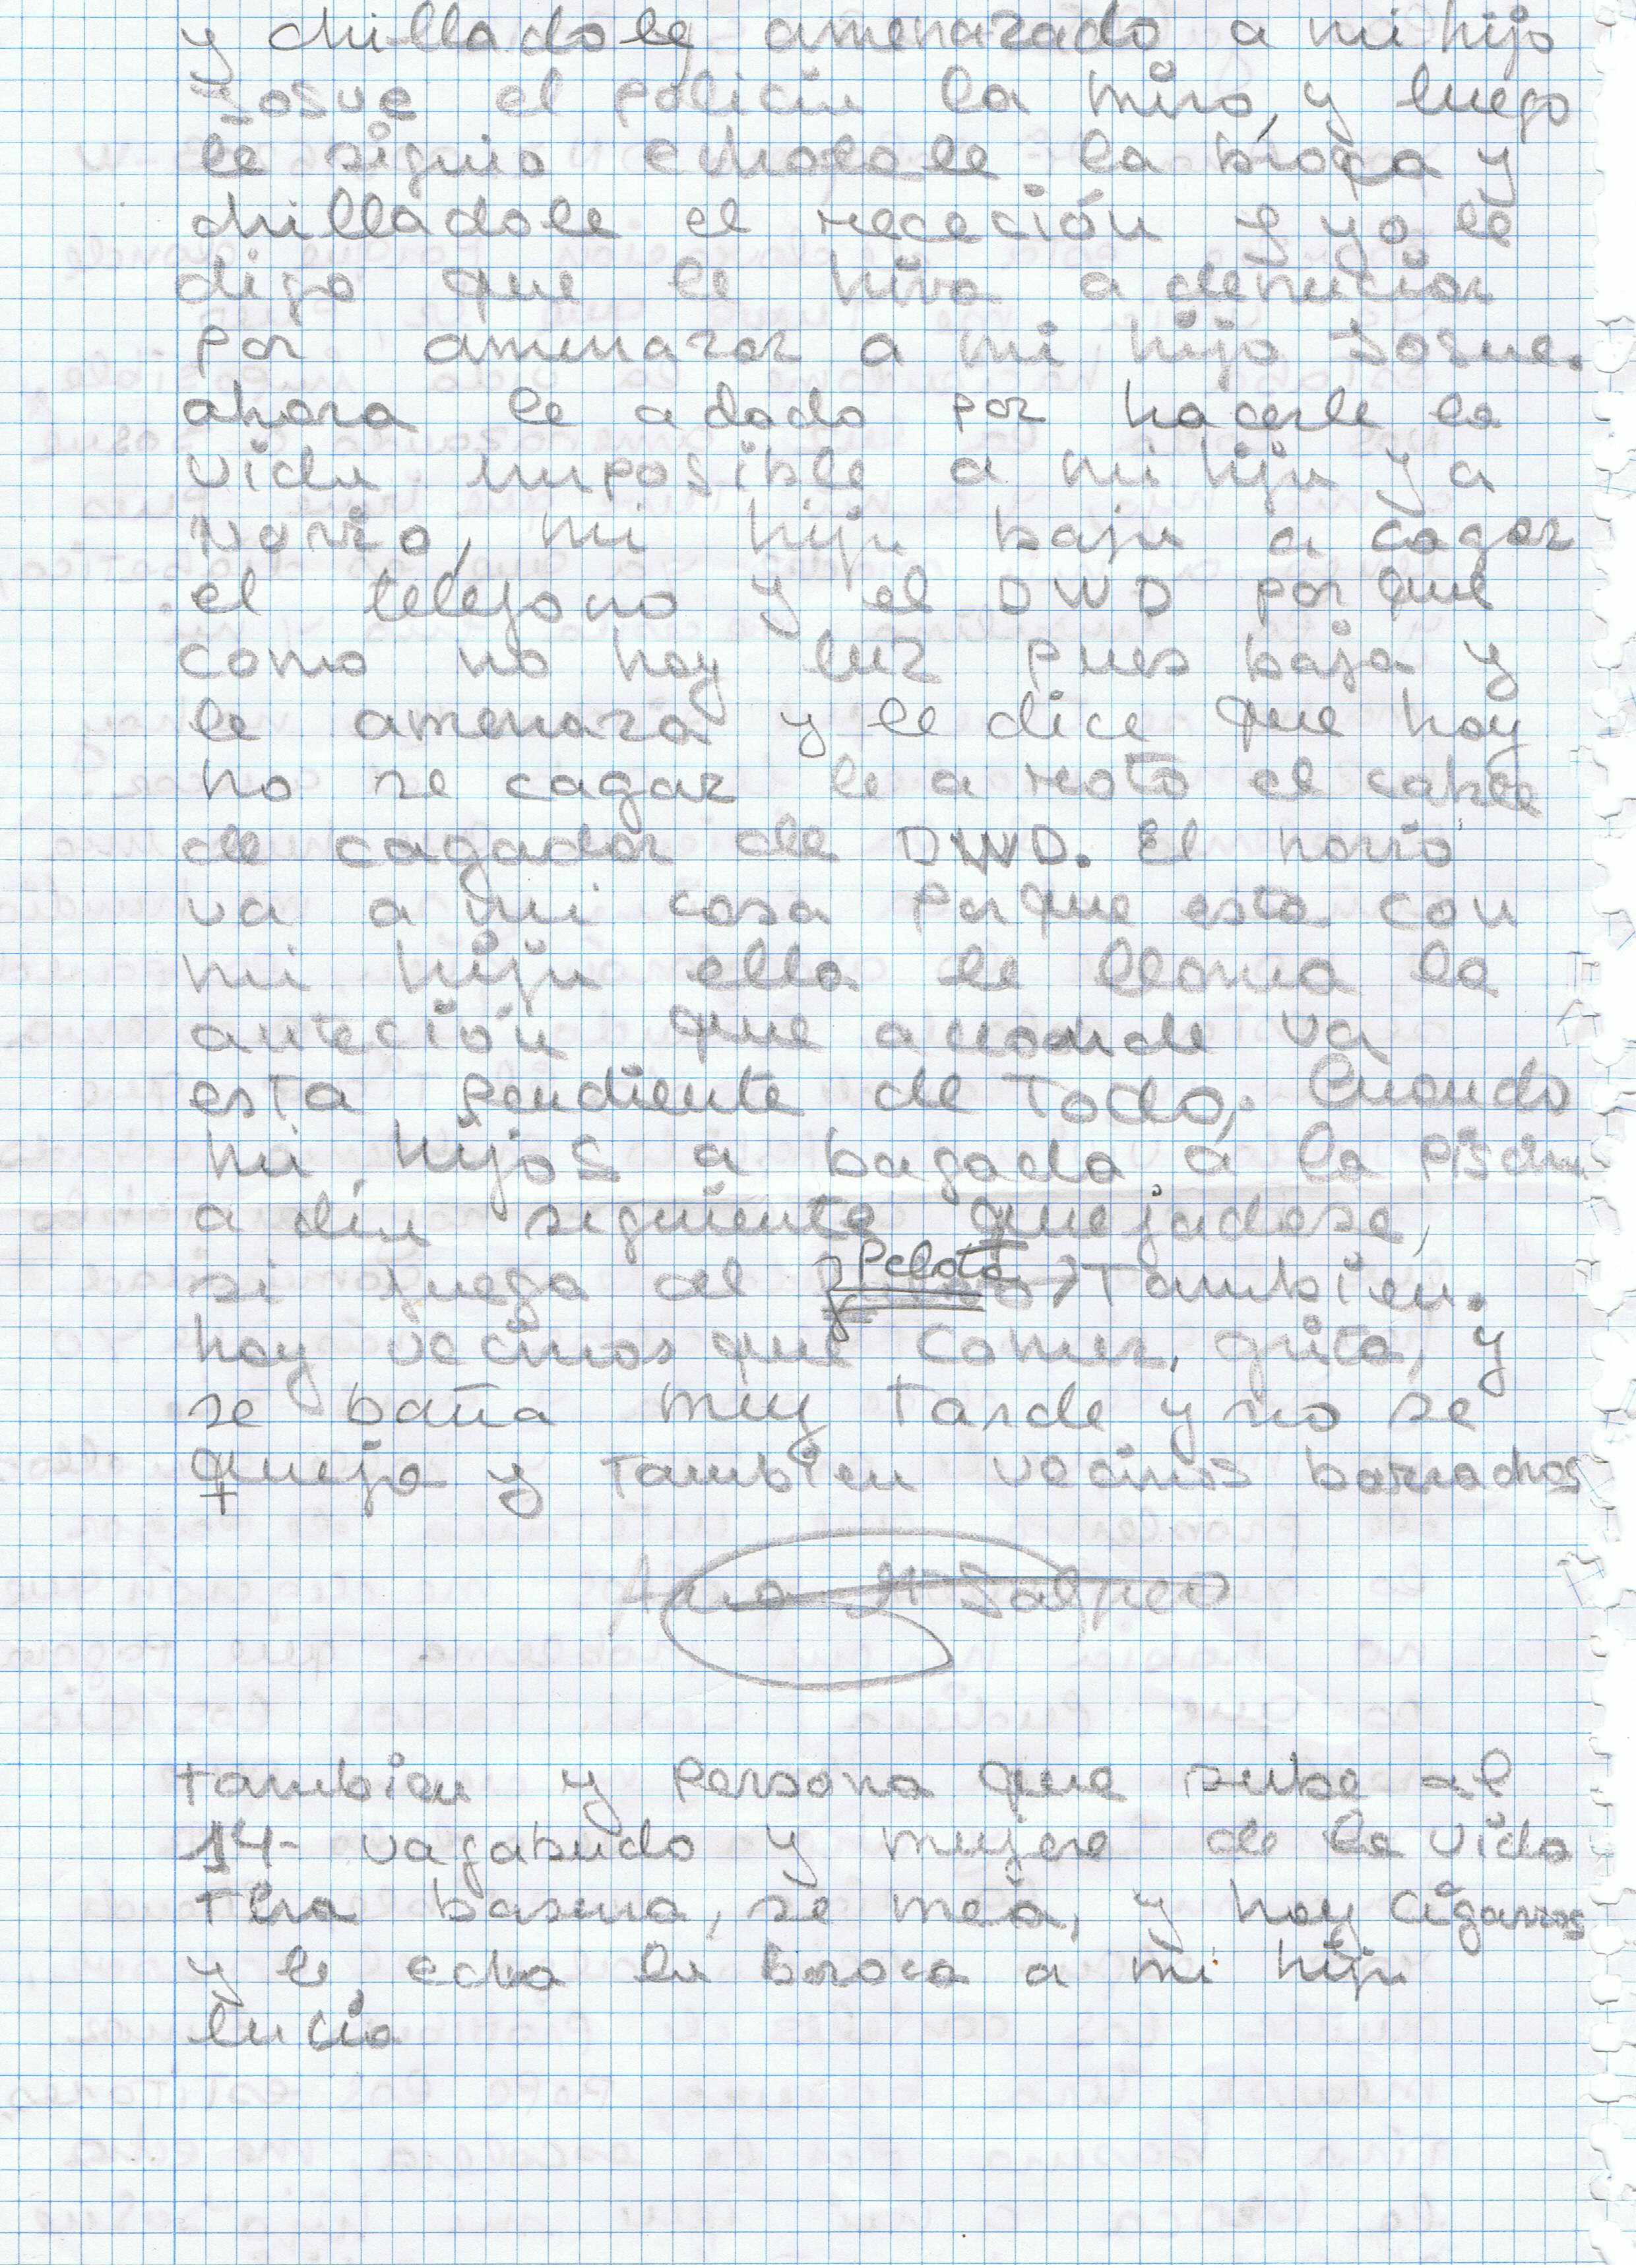 y chilladole amenazado a mi hijo
Josue el policia la miro, y luego
le siguio echadole la broca y
chilladole el receción y yo le
digo que le hiva a denuciar
por amenazar a mi hijo Josue.
ahora le a dado por hacerle la
vida imposible a mi hija y a
Novio, mi hija baja a cagar
el telefono y el DWD por que
como no hay luz pues baja y
le amenaza y le dice que hay
no se cagar le a roto el cable
de cagador de DWD. El novio
va a mi cosa porque esta con
mi hija ella le llama la
anteción que a
va
esta pendiente de Todo, Cuando
mi hijos a bagado a la
a dia siguiente quejadose,
si juega al Pelota Tambien.
hay vecinos que comer, grita, y
se baña muy tarde y no se
queja y tambien vecinos borrachos
Ana Mª
tambien y persona que sube al
14- vagabudo y mujere de la vida
tira basura, se mea, y hay cigarros
y le echa la broca a mi hija
lucia